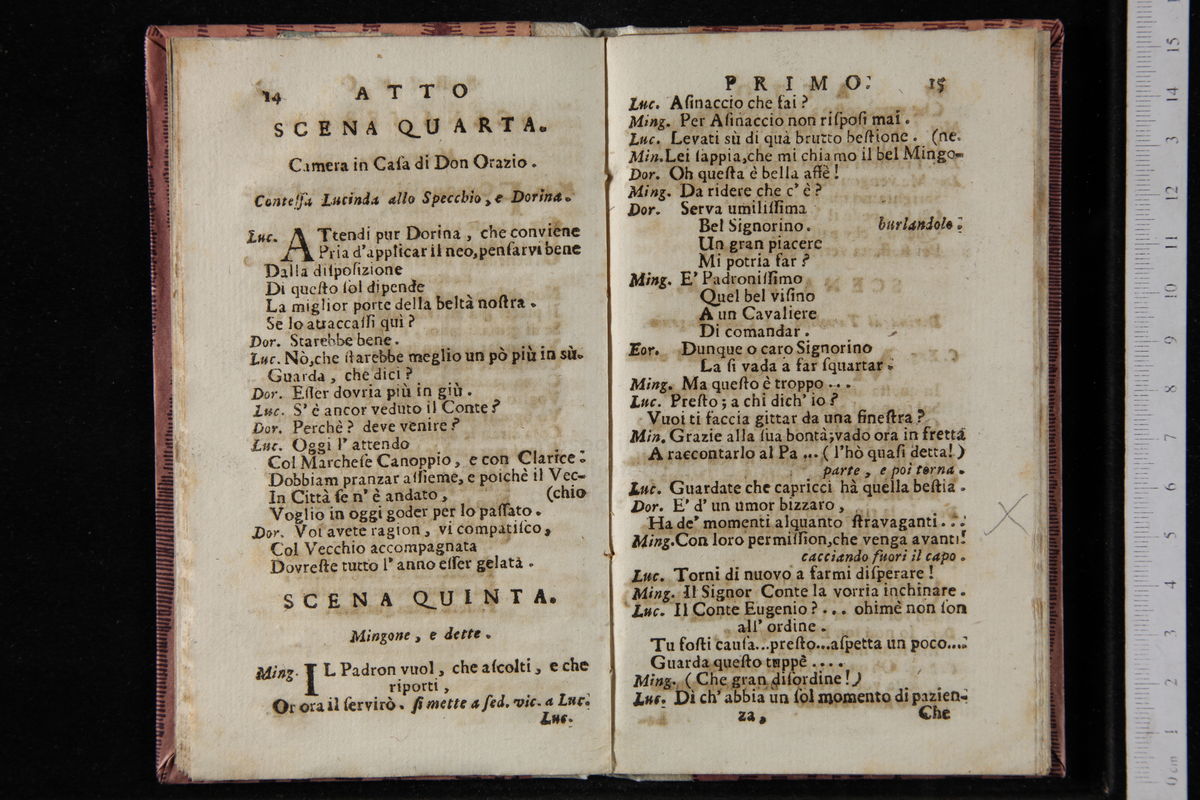 14 ATTO
SCENA QUARTA.
Camera in Caſa di Don Orazio.
Conteſſa Lucinda allo Specchio, e Dorina.
Luc. ATtendi pur Dorina, che conviene
Pria d'applicar il neo, penſarvi bene
Dalla diſpoſizione
Di queſto ſol dipende
La miglior porte della beltà noſtra.
Se lo attaccaſſi quì?
Dor. Starebbe bene.
Luc. Nò, che ſtarebbe meglio un pò più in sù.
Guarda, che dici?
Dor. Eſſer dovria più in giù.
Luc. S' è ancor veduto il Conte?
Dor. Perchè? deve venire?
Luc. Oggi l' attendo
Col Marcheſe Canoppio, e con Clarice:
Dobbiam pranzar aſſieme, e poichè il Vec-
In Città ſe n' è andato, (chio
Voglio in oggi goder per lo paſſato.
Dor. Voi avete ragion, vi compatiſco,
Col Vecchio accompagnata
Dovreſte tutto l' anno eſſer gelata.
SCENA QUINTA.
Mingone, e dette.
Ming. IL Padron vuol, che aſcolti, e che
riporti,
Or ora il ſervirò. ſi mette a ſed. vic. a Luc.
Luc.
PRIMO. 15
Luc. Aſinaccio che fai?
Ming. Per Aſinaccio non riſpoſi mai.
Luc. Levati sù di quà brutto beſtione. (ne.
Min. Lei ſappia, che mi chiamo il bel Mingo-
Dor. Oh queſta è bella affè!
Ming. Da ridere che c' è?
Dor. Serva umiliſſima
Bel Signorino. burlandolo.
Un gran piacere
Mi potria far?
Ming. E' Padroniſſimo
Quel bel viſino
A un Cavaliere
Di comandar.
Eor. Dunque o caro Signorino
La ſi vada a far ſquartar.
Ming. Ma queſto è troppo...
Luc. Preſto; a chi dich' io?
Vuoi ti faccia gittar da una fineſtra?
Min. Grazie alla ſua bontà; vado ora in fretta
A raccontarlo al Pa... (l'hò quaſi detta!)
parte, e poi torna.
Luc. Guardate che capricci hà quella beſtia.
Dor. E' d' un umor bizzaro,
Ha de' momenti alquanto ſtravaganti...
Ming. Con loro permiſſion, che venga avanti!
cacciando fuori il capo.
Luc. Torni di nuovo a farmi diſperare!
Ming. Il Signor Conte la vorria inchinare.
Luc. Il Conte Eugenio?... ohimè non ſon
all' ordine.
Tu foſti cauſa...preſto...aſpetta un poco....
Guarda queſto tuppè....
Ming. (Che gran diſordine!)
Luc. Dì ch' abbia un ſol momento di pazien-
za, Che